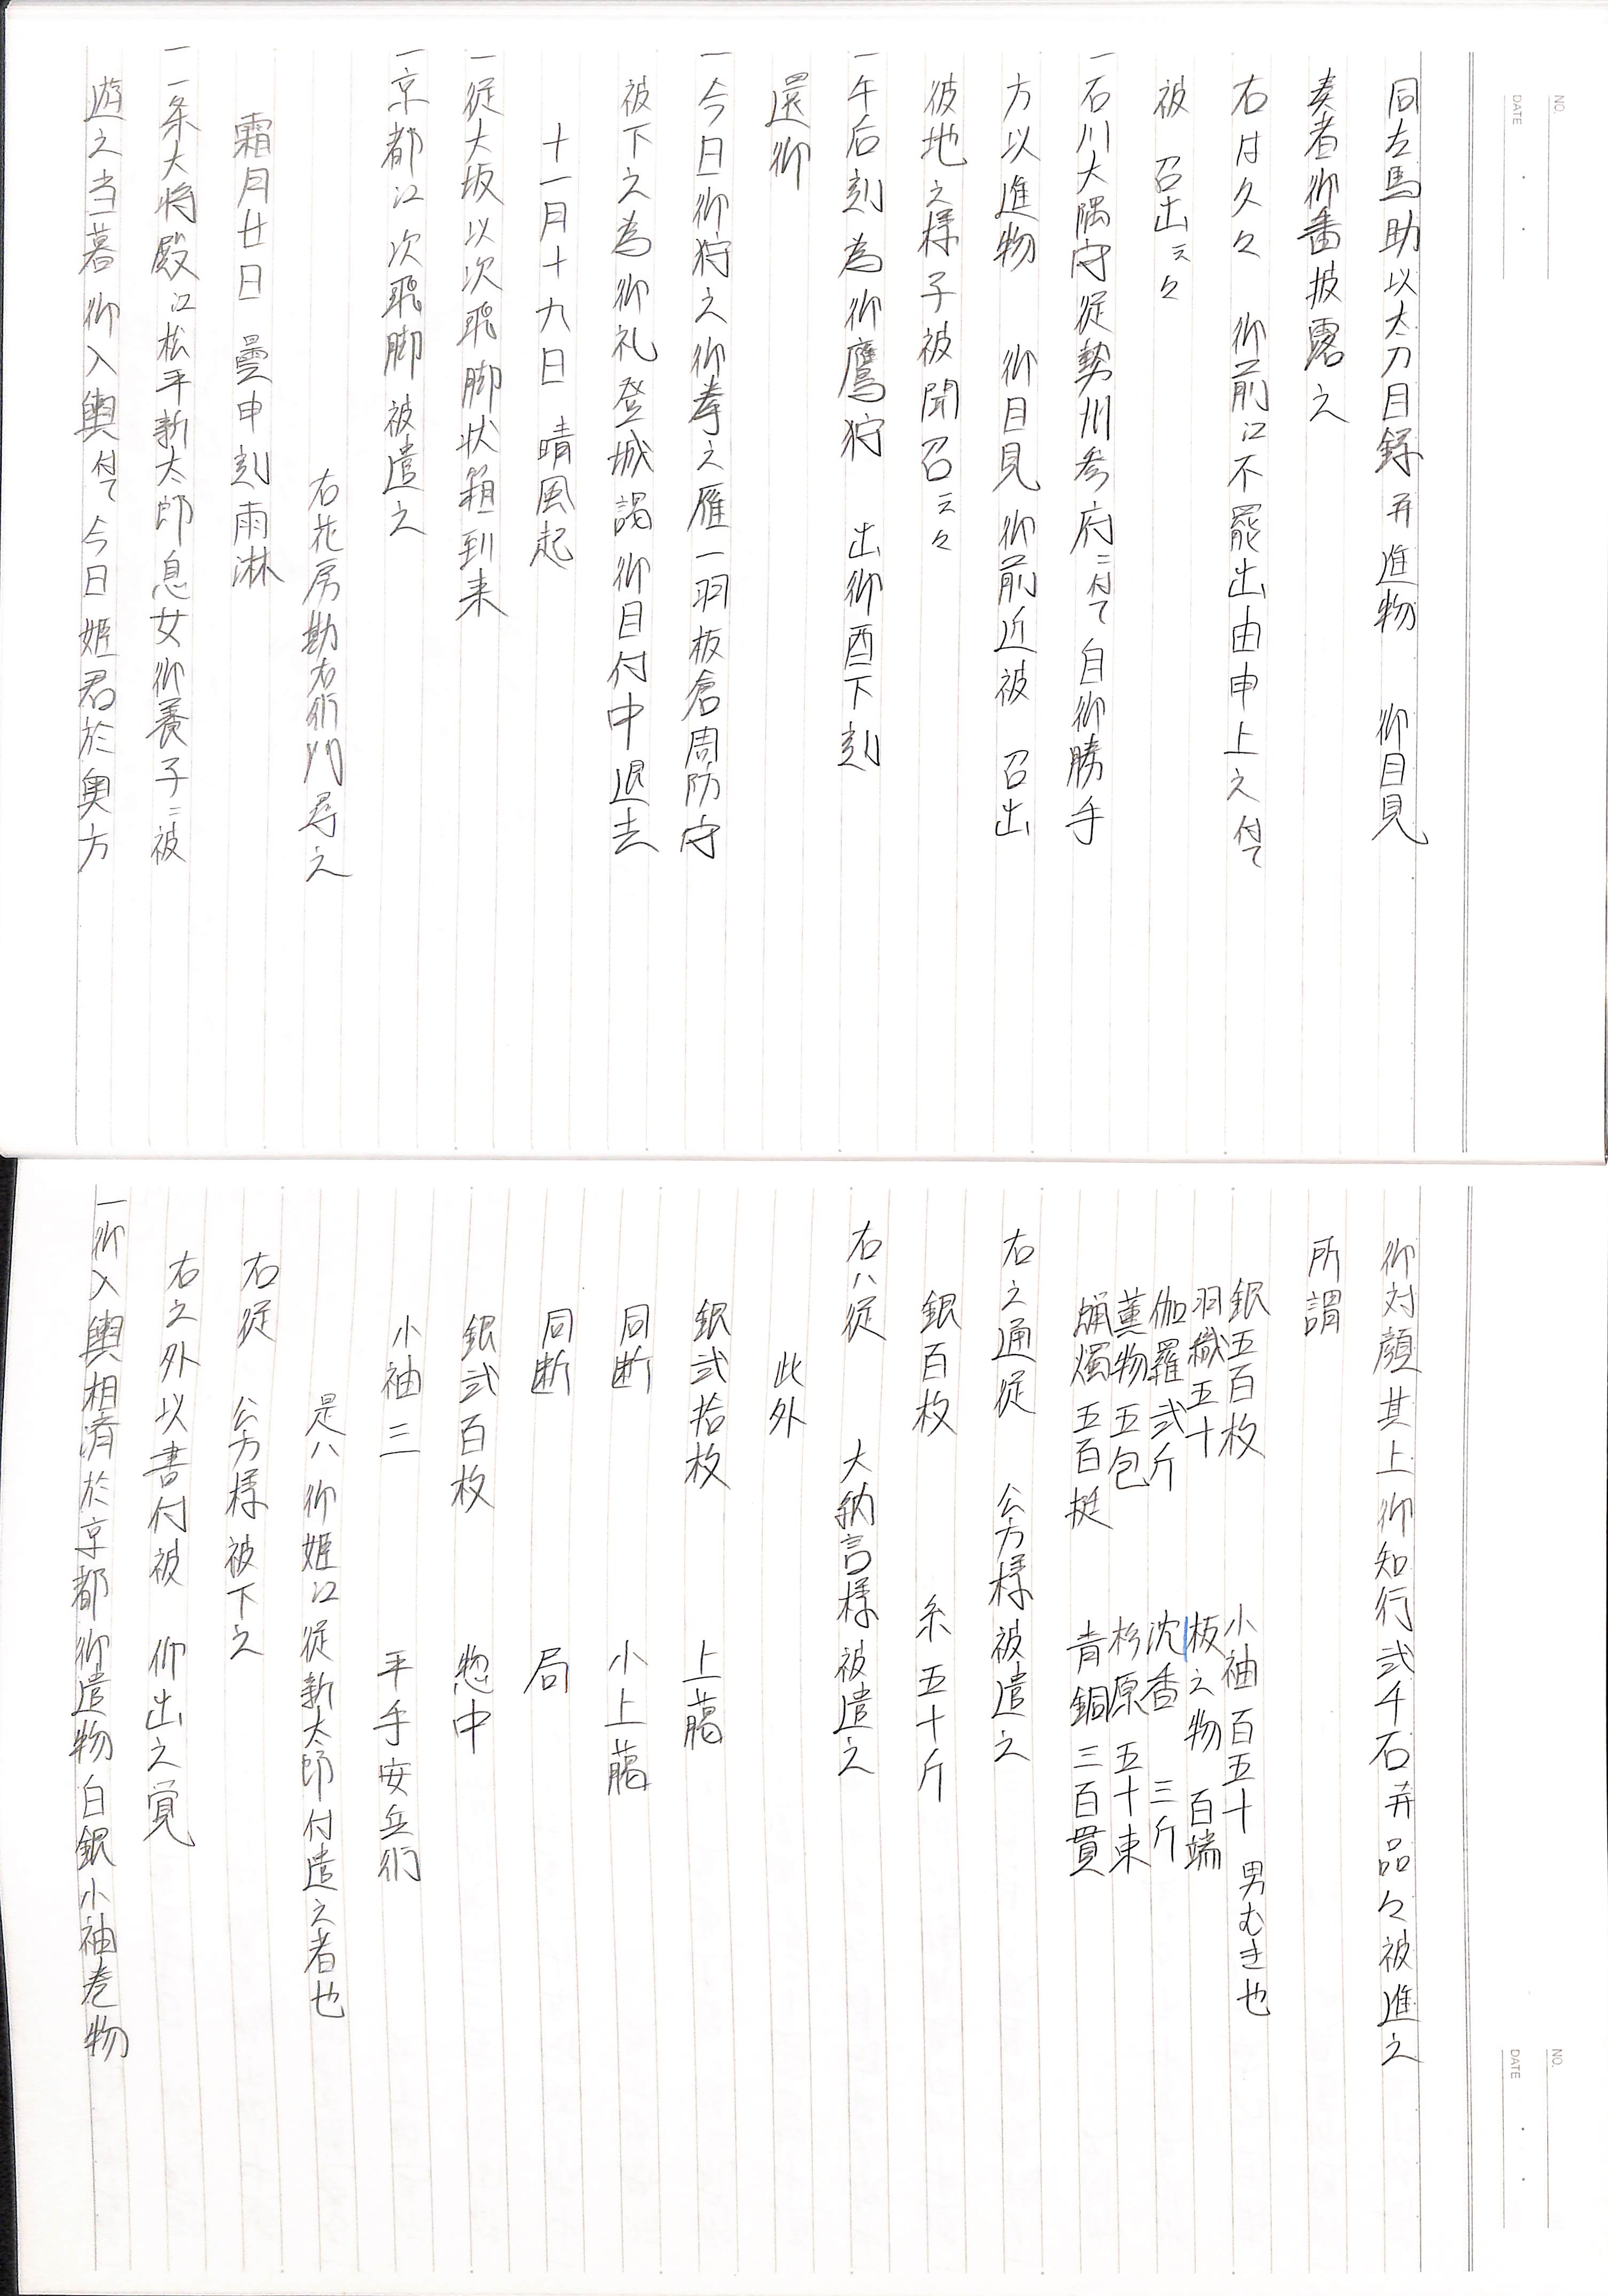 NO.
DATE
同左馬助以太刀目録并進物　御目見
奏者御番披露之
右は久々　御前江不罷出由申上之付て
被　召出云々
一石川大隅守従勢州参府ニ付て自御勝手
方以進物　御目見御前近被　召出
彼地之様子被聞召云々
一午后刻為御鷹狩　出御酉下刻
還御
一今日御狩之御拳之雁一羽板倉周防守
被下之為御礼登城謁御目付中退去
十一月十九日　晴風起
一従大坂以次飛脚状箱到来
一京都江次飛脚被遣之
右花房勘右衛門尋之
霜月廿日　曇申刻雨淋
一一条大将殿江松平新太郎息女御養子ニ被
遊之当暮御入輿付て今日姫君於奥方
NO.
DATE
御対顔其上御知行弐千石并品々被進之
所謂
銀五百枚　小袖百五十　男むき也
羽織五十　板之物　百端
伽羅弐斤　沈香　三斤
薫物五包　杉原　五十束
蝋燭五百挺　青銅三百貫
右之通従　公方様被遣之
銀百枚　糸五十斤
右ハ従　大納言様被遣之
此外
銀弐拾枚　上﨟
同断　小上﨟
同断　局
銀弐百枚　惣中
小袖三　平手安兵衛
是ハ御姫江従新太郎付遣之者也
右従　公方様被下之
右之外以書付被　仰出之覚
一御入輿相済於京都御遣物白銀小袖巻物